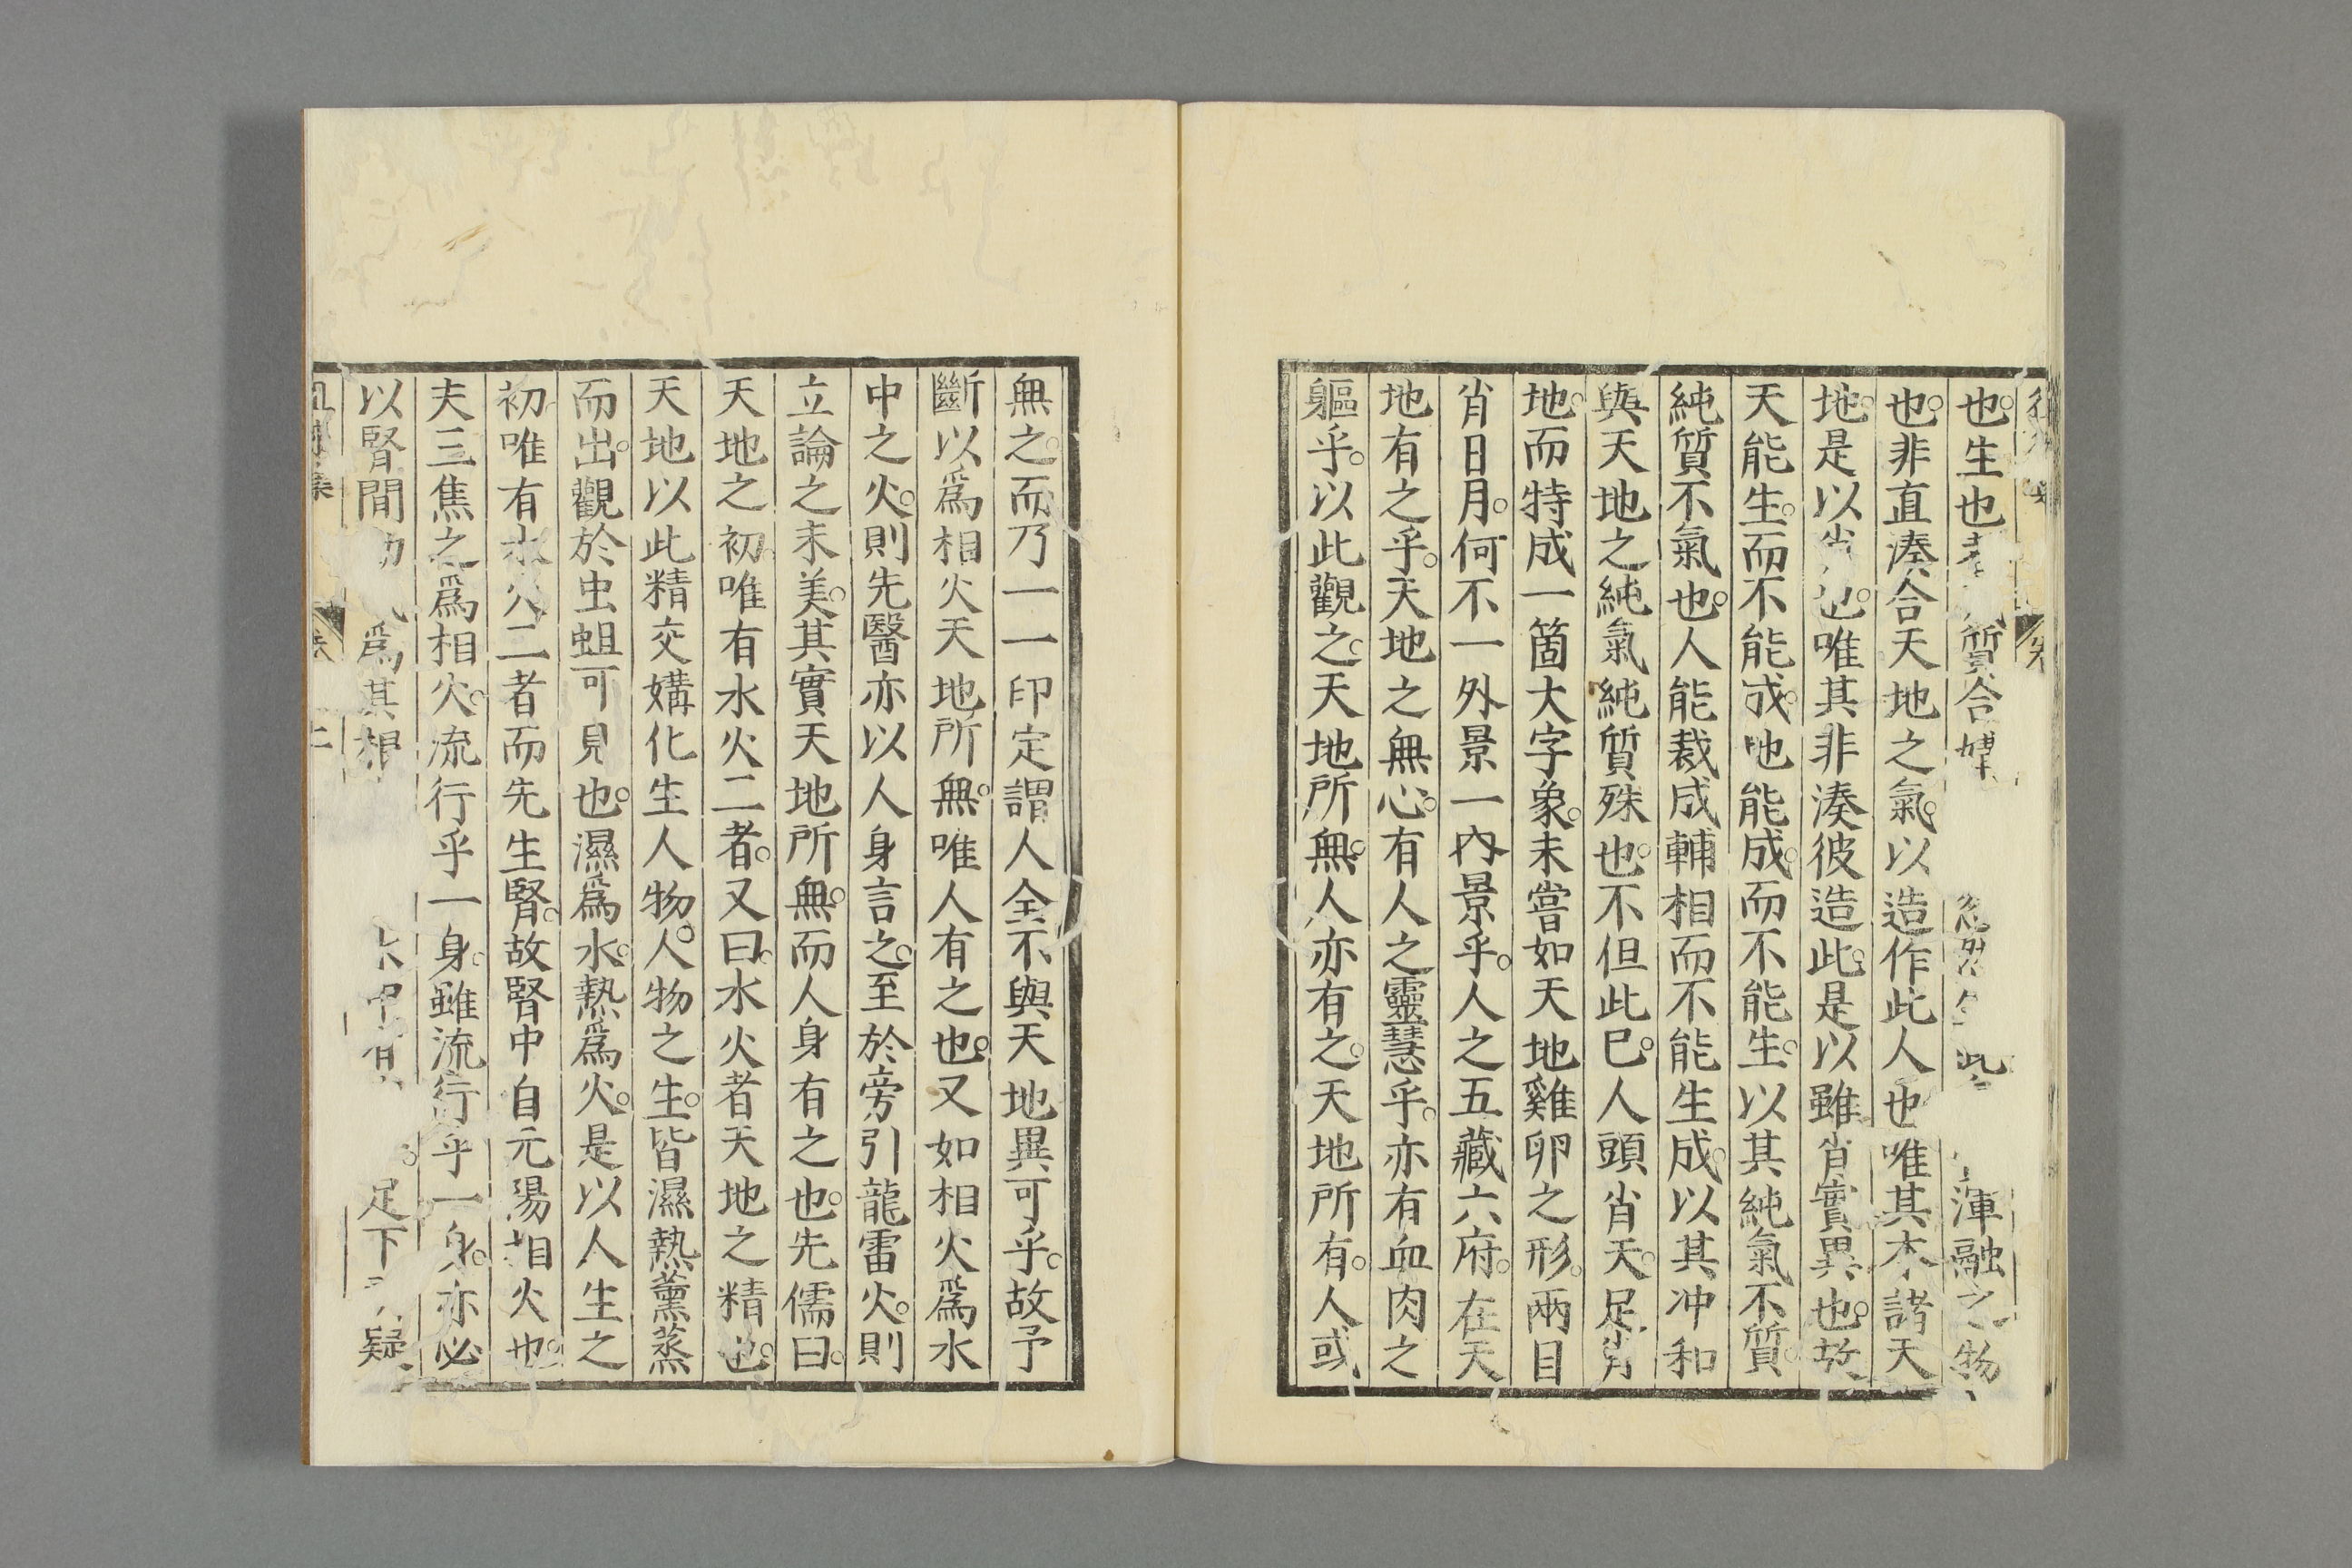 也。生也 質合媾 渾融之物
也。非直湊合天地之氣。以造作此人也唯其本諸天
地。是以肖也。唯其非湊彼造此。是以雖肖實異也。故
天能生。而不能成。地能成。而不能生。以其純氣不質。
純質不氣也。人能裁成輔相而不能生成。以其冲和
與天地之純氣純質殊也。不但此已。人頭肖天。足肖
地。而特成一箇大字象。未嘗如天地雞卵之形。兩目
肖日月。何不一外景一內景乎。人之五藏六府。在天
地有之乎。天地之無心。有人之靈慧乎。亦有血肉之
軀乎。以此觀之。天地所無。人亦有之。天地所有。人或
無之。而乃一一印定謂人全不與天地異可乎。故予
斷以爲相火天地所無。唯人有之也。又如相火爲水
中之火。則先醫亦以人身言之。至於旁引龍雷火。則
立論之未美。其實天地所無。而人身有之也。先儒曰。
天地之初。唯有水火二者。又曰。水火者天地之精也。
天地以此精交媾化生人物。人物之生。皆濕熱薰蒸
而出。觀於虫蛆可見也。濕爲水。熱爲火。是以人生之
初。唯有水火二者而先生腎。故腎中自元陽相火也。
夫三焦之爲相火。流行乎一身。雖流行乎一身。亦必
以腎間動 爲其根 足下 疑